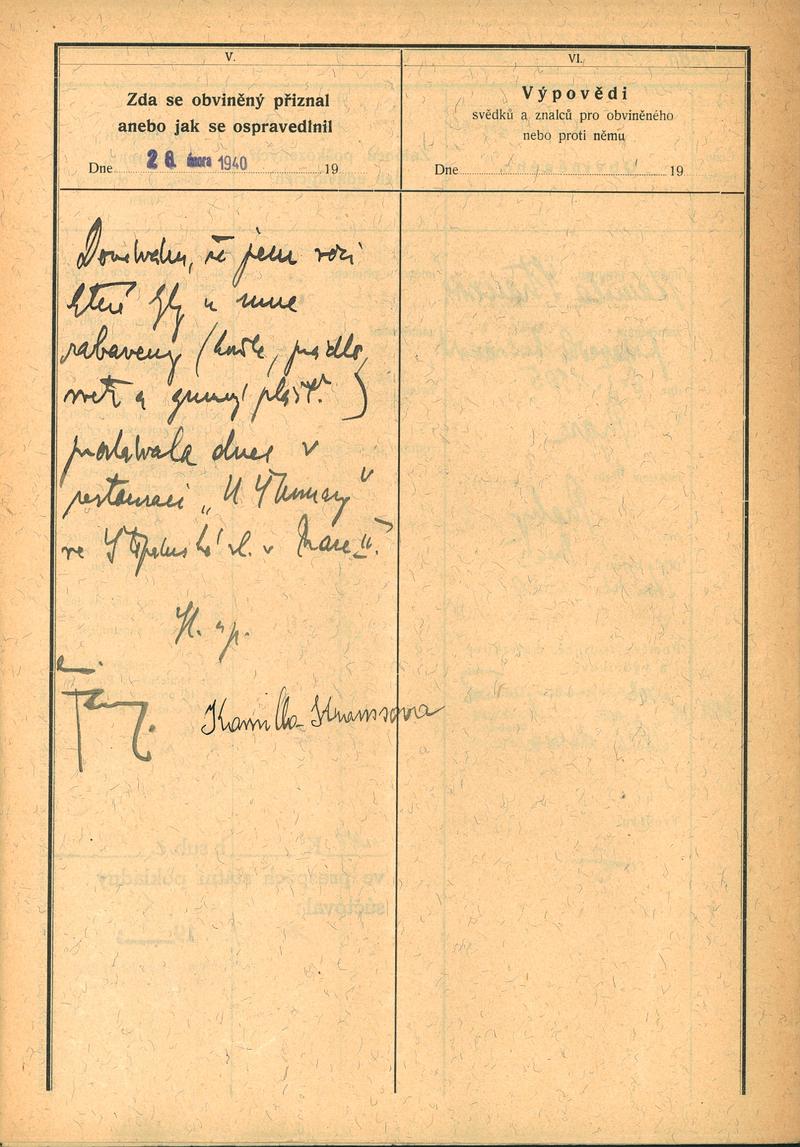 V.
Zda se obviněný přiznal
anebo jak se ospravedlnil
Dne 26. února 1940 19
VI.
Výpovědi
svědků a znalců pro obviněného
nebo proti němu
Dne 19
že jsem věci
které byly u mne
zabaveny (košile, prádlo,
svetr a gumový plášť.)
prodávala dnes v
restauraci „U Šumavy“
ve Štěpánské ul. v Praze II.
Kamilla Straussova